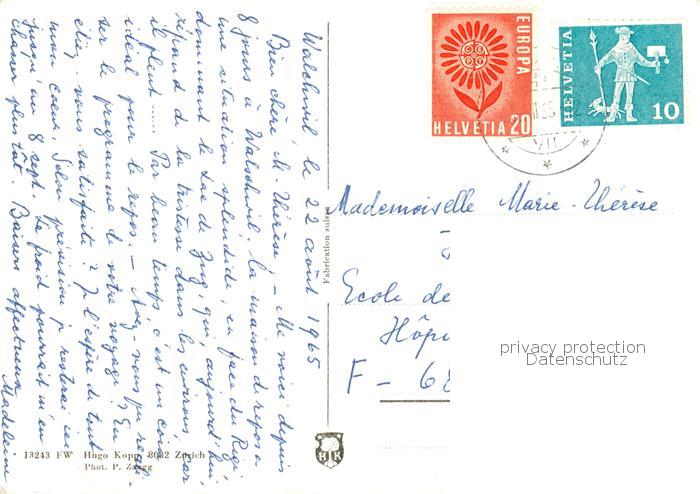 Walchwil, le 22 août 1965
Bien chère M-Thérèse, – Me voici depuis
8 jours à Walchwil. la maison de repos a
une situation splendide, en face du Rigi
dominant le Lac de Zug, qui, aujourd'hui,
répand de la tristesse dans les environs, car
il pleut..... Par beau temps, c'est un coin
idéal pour le repos. – Avez-vous pu réali-
ser le programme de votre voyage? En
étiez-vous satisfaite? Je l'espère de tout
mon coeur. Selon prévision je resterai ici
jusqu'au 8 sept. Le froid pourrait m'en
chasser plus tôt. Baisers affectueux
Madeleine
13243 FW Hugo Kopp, 8032 Zürich
Phot. P. Zaugg
Fabrication suisse
HK
EUROPA
HELVETIA 20
HELVETIA
10
VII
Mademoiselle Marie-Thérèse
Ecole de
Hôp
F – 68
privacy protection
Datenschutz